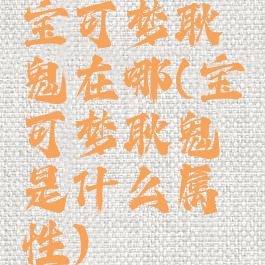 宝可梦耿
鬼在哪(宝
可梦耿鬼
是什么属
性)